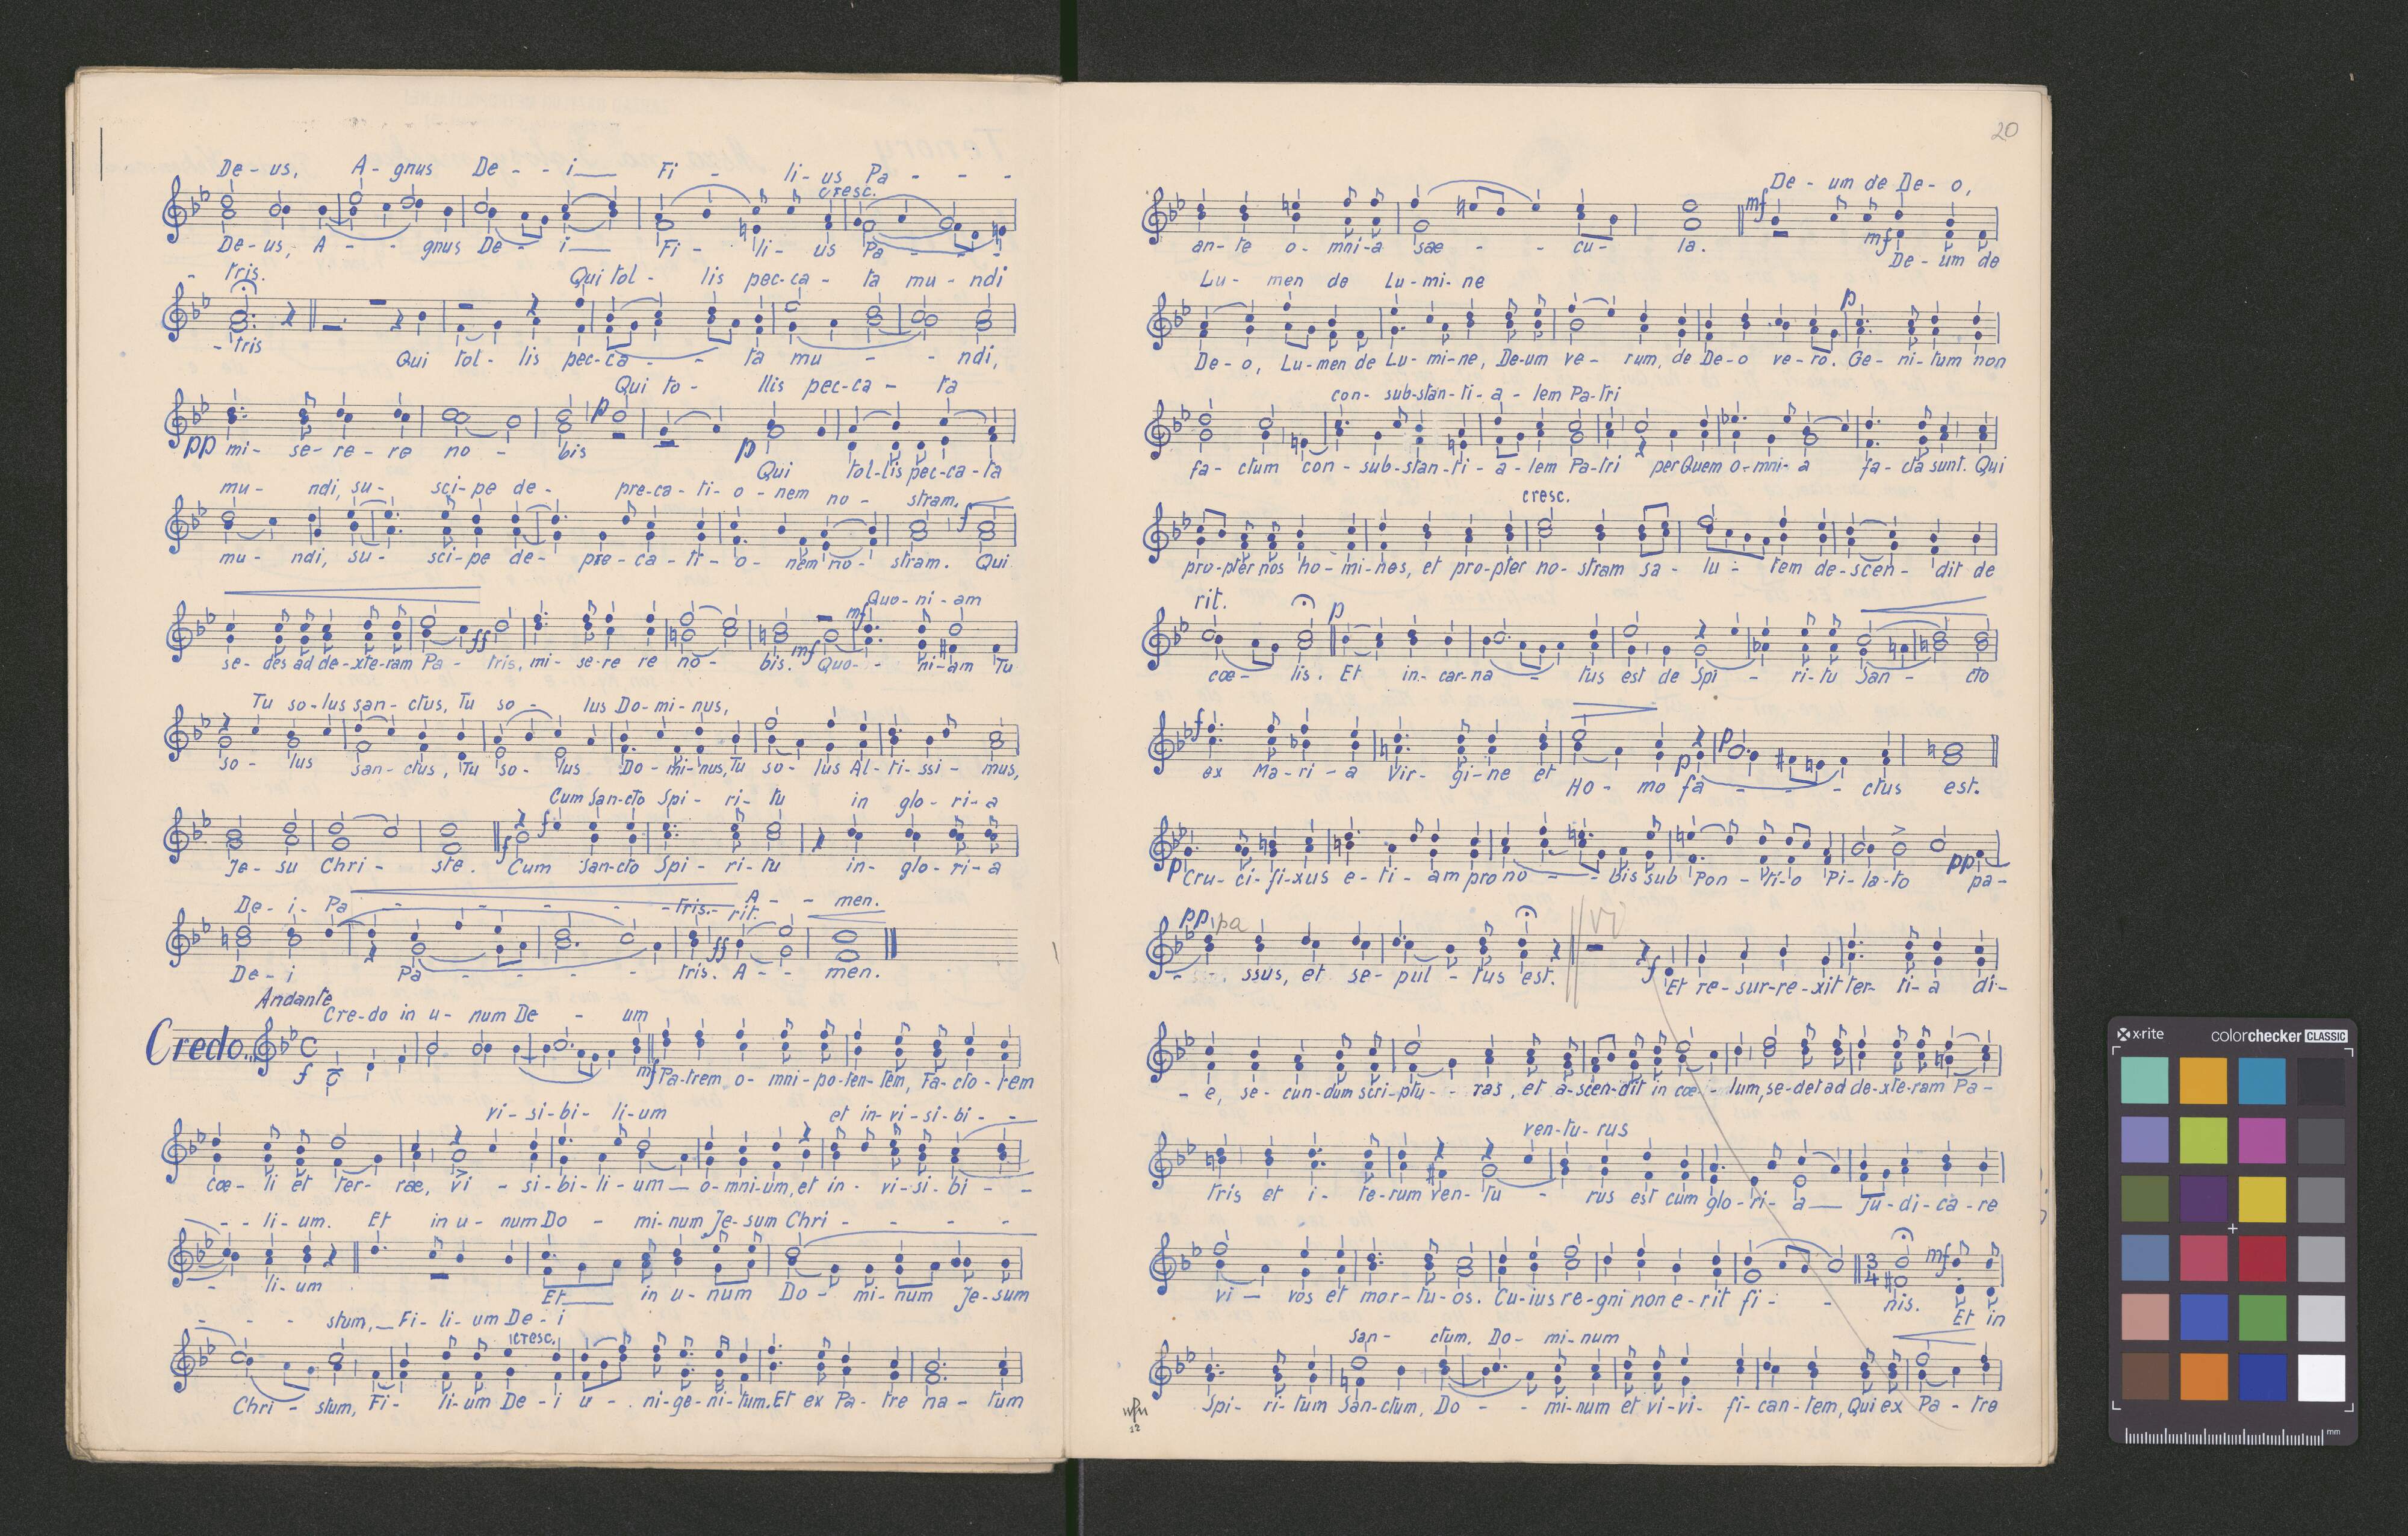 De - us, A - gnus De - - i Fi - li - us Pa - - -
cresc.
De - us, A - - gnus De - i Fi - li - us Pa - - -
- tris. Qui tol - lis pec-ca - ta mu - ndi
- tris Qui tol - lis pec-ca - - ta mu - - ndi,
Qui to - llis pec-ca - ta
p
pp mi - se - re - re no - bis p Qui tol-lis pec-ca-ta
mu - ndi, su - sci-pe de - pre-ca-ti-o-nem no - stram.
f
mu - ndi, su - sci-pe de - pre-ca-ti-o-nem no - stram. Qui
Quo-ni-am
ff mf mf
se - des ad de-xte-ram Pa - tris, mi - se-re re no - bis. Quo - - ni-am Tu
Tu so-lus san - ctus, Tu so - lus Do-mi-nus,
so - lus san - ctus, Tu so - lus Do-mi-nus, Tu so - lus Al-ti-ssi - mus,
Cum San-cto Spi - ri - tu in glo - ri - a
f f
Je - su Chri - ste. Cum San-cto Spi - ri - tu in - glo - ri - a
De - i - Pa - - - - - tris. - A - - men.
rit.
ff
De - i Pa - - - - - tris. A - - men.
Andante
Cre-do in u - num De - um
Credo C
f mf Pa-trem o - mni-po-ten-tem, fa-cto-rem
vi - si-bi - li-um et in-vi-si-bi - -
cœ - li et ter - ræ, vi - si-bi-li-um o-mni-um, et in - vi-si-bi - -
- - li-um. Et in u - num Do - mi-num Je-sum Chri - - - -
- li-um Et in u-num Do - mi-num Je-sum
- - - stum, Fi-li-um De-i
cresc.
Chri - stum, Fi - li-um De-i u - ni-ge-ni-tum. Et ex Pa-tre na - tum
20
De - um de De - o,
mf mf
an-te o - mni-a sae - - cu - la. De - um de
Lu - men de Lu-mi-ne
p
De-o, Lu-men de Lu-mi-ne, De-um ve - rum, de De-o ve-ro. Ge - ni-tum non
con - sub-stan-ti-a-lem Pa-tri
fa - ctum con - sub-stan-ti-a-lem Pa-tri per Quem o-mni-a fa-cta sunt. Qui
cresc.
pro-pter nos ho-mi-nes, et pro-pter no-stram sa - lu - tem de-scen - dit de
rit. p
cœ - lis. Et in-car-na - tus est de Spi - ri-tu San - cto
f p p
ex Ma-ri-a Vir - gi-ne et Ho - mo fa - - - ctus est.
p Cru-ci-fi-xus e-ti-am pro no - - bis sub Pon-ti-o Pi-la-to pp pa -
pp pa vi
f
- ssus, et se-pul-tus est. Et re-sur-re-xit ter - ti-a di -
- e, se - cun-dum scri-ptu - - ras, et a-scen-dit in cœ - lum, se-det ad de-xte-ram Pa -
ven-tu-rus
tris et i - te-rum ven - tu - rus est cum glo-ri-a Ju-di-ca-re
3
4 mf
vi - vos et mor-tu-os. Cu-ius re-gni non e-rit fi - - nis. Et in
San - ctum, Do - mi-num
Spi - ri-tum San-ctum, Do - - mi-num et vi-vi-fi-can-tem, Qui ex Pa - tre
12
x-rite colorchecker CLASSIC
mm